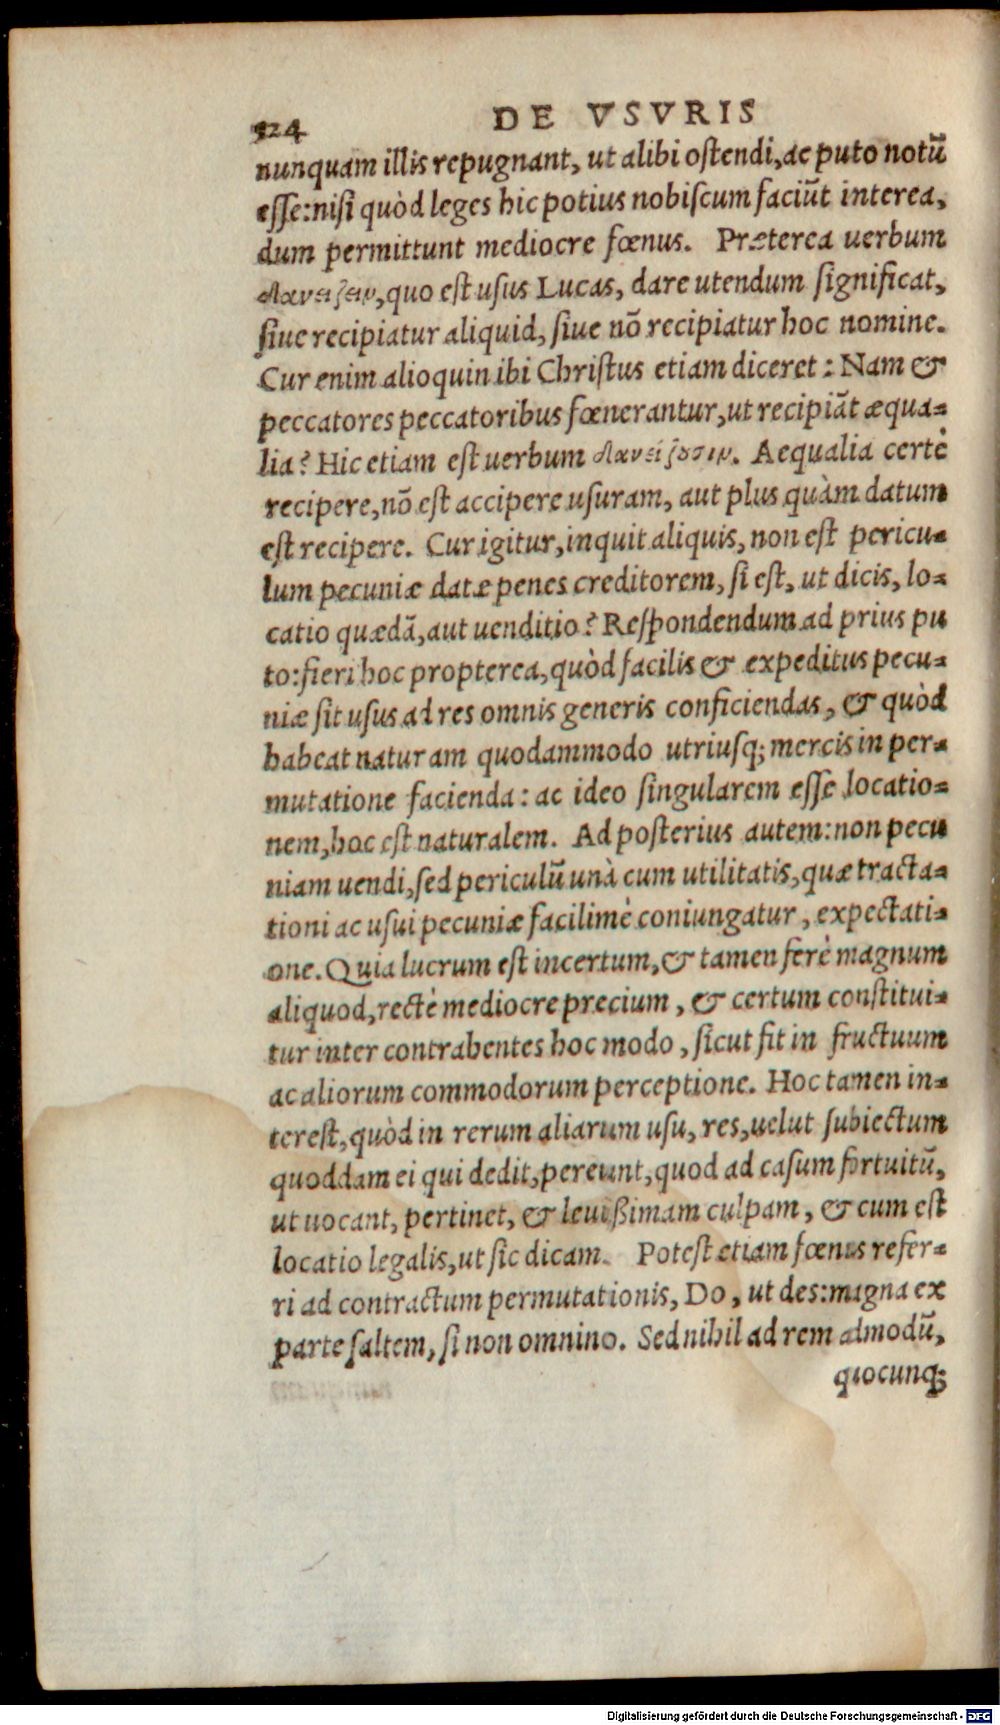 524 DE VSVRIS
nunquam illis repugnant, ut alibi ostendi, ac puto notũ
esse: nisi quòd leges hic potius nobiscum faciũt interea,
dum permittunt mediocre fœnus. Præterea uerbum
δανείζειν, quo est usus Lucas, dare utendum significat,
siue recipiatur aliquid, siue nõ recipiatur hoc nomine.
Cur enim alioquin ibi Christus etiam diceret: Nam &
peccatores peccatoribus fœnerantur, ut recipiãt æqua-
lia? Hic etiam est uerbum δανείζουσιν. Aequalia certè
recipere, nõ est accipere usuram, aut plus quàm datum
est recipere. Cur igitur, inquit aliquis, non est pericu-
lum pecuniæ datæ penes creditorem, si est, ut dicis, lo-
catio quædã, aut uenditio? Respondendum ad prius pu
to: fieri hoc propterea, quòd facilis & expeditus pecu-
niæ sit usus ad res omnis generis conficiendas, & quòd
habeat naturam quodammodo utriusq; mercis in per-
mutatione facienda: ac ideo singularem esse locatio-
nem, hoc est naturalem. Ad posterius autem: non pecu
niam uendi, sed periculũ unà cum utilitatis, quæ tracta-
tioni ac usui pecuniæ facilimè coniungatur, expectati-
one. Quia lucrum est incertum, & tamen ferè magnum
aliquod, rectè mediocre precium, & certum constitui-
tur inter contrahentes hoc modo, sicut fit in fructuum
ac aliorum commodorum perceptione. Hoc tamen in-
terest, quòd in rerum aliarum usu, res, uelut subiectum
quoddam ei qui dedit, pereunt, quod ad casum fortuitũ,
ut uocant, pertinet, & leuißimam culpam, & cum est
locatio legalis, ut sic dicam. Potest etiam fœnus refer-
ri ad contractum permutationis, Do, ut des: magna ex
parte saltem, si non omnino. Sed nihil ad rem admodũ,
quocunq;
Digitalisierung gefördert durch die Deutsche Forschungsgemeinschaft - DFG